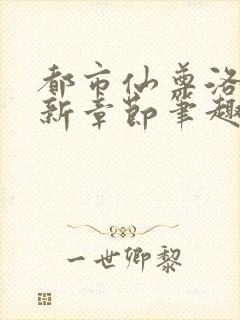 都市仙尊洛
新章节笔趣
一世卿黎